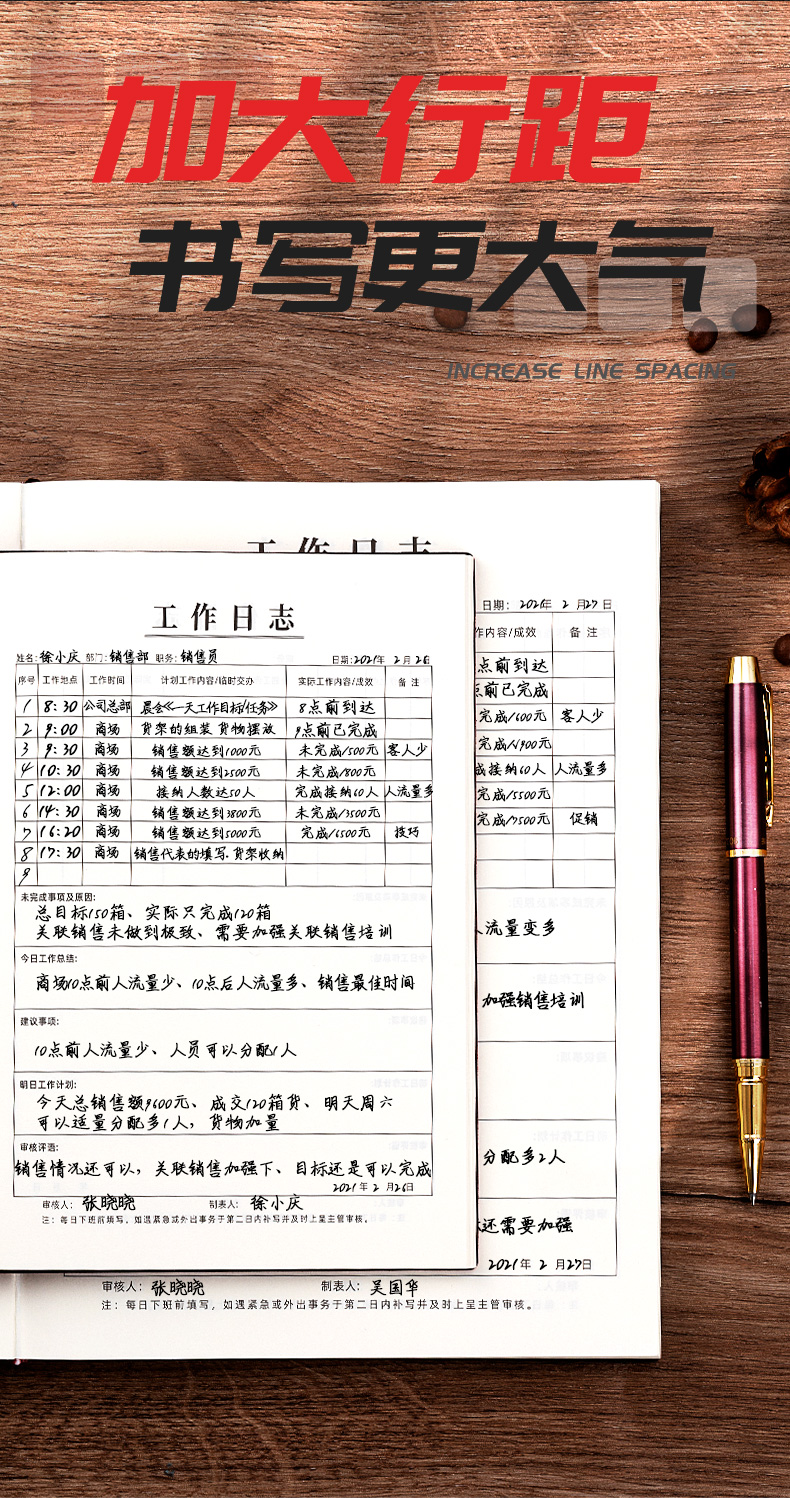 加大行距
书写更大气
INCREASE LINE SPACING
工作日志
姓名:徐小庆 部门:销售部 职务:销售员 日期:2021年 2 月 26
序号 工作地点 工作时间 计划工作内容/临时交办 实际工作内容/成效 备 注
1 8:30 公司总部 晨会《一天工作目标/任务》 8点前到达
2 9:00 商场 货架的组装 货物摆放 9点前已完成
3 9:30 商场 销售额达到1000元 未完成/500元 客人少
4 10:30 商场 销售额达到2500元 未完成/800元
5 12:00 商场 接纳人数达50人 完成接纳60人 人流量多
6 14:30 商场 销售额达到3800元 未完成/3500元
7 16:20 商场 销售额达到5000元 完成/6500元 技巧
8 17:30 商场 销售代表的填写.货架收纳
9
未完成事项及原因:
总目标150箱、实际只完成120箱
关联销售未做到极致、需要加强关联销售培训
今日工作总结:
商场10点前人流量少、10点后人流量多、销售最佳时间
建议事项:
10点前人流量少、人员可以分配1人
明日工作计划:
今天总销售额9600元、成交120箱货、明天周六
可以适量分配多1人，货物加量
审核评语:
销售情况还可以，关联销售加强下、目标还是可以完成
2021年 2 月26日
审核人: 张晓晓 制表人: 徐小庆
注: 每日下班前填写，如遇紧急或外出事务于第二日内补写并及时上呈主管审核。
工作日志
日期: 2021年 2 月27日
作内容/成效 备 注
点前到达
点前已完成
完成/600元 客人少
完成/1900元
成接纳60人 人流量多
完成/5500元
完成/7500元 促销
人流量变多
加强销售培训
分配多2人
还需要加强
2021年 2 月27日
审核人: 张晓晓 制表人: 吴国华
注: 每日下班前填写，如遇紧急或外出事务于第二日内补写并及时上呈主管审核。